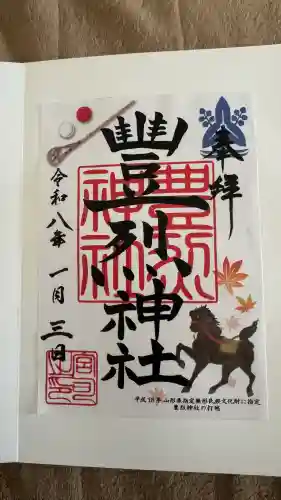 奉拝
豐烈神社
令和八年 一月 三日
豊烈神社
平成18年 山形県指定無形民俗文化財に指定
豊烈神社の打毬